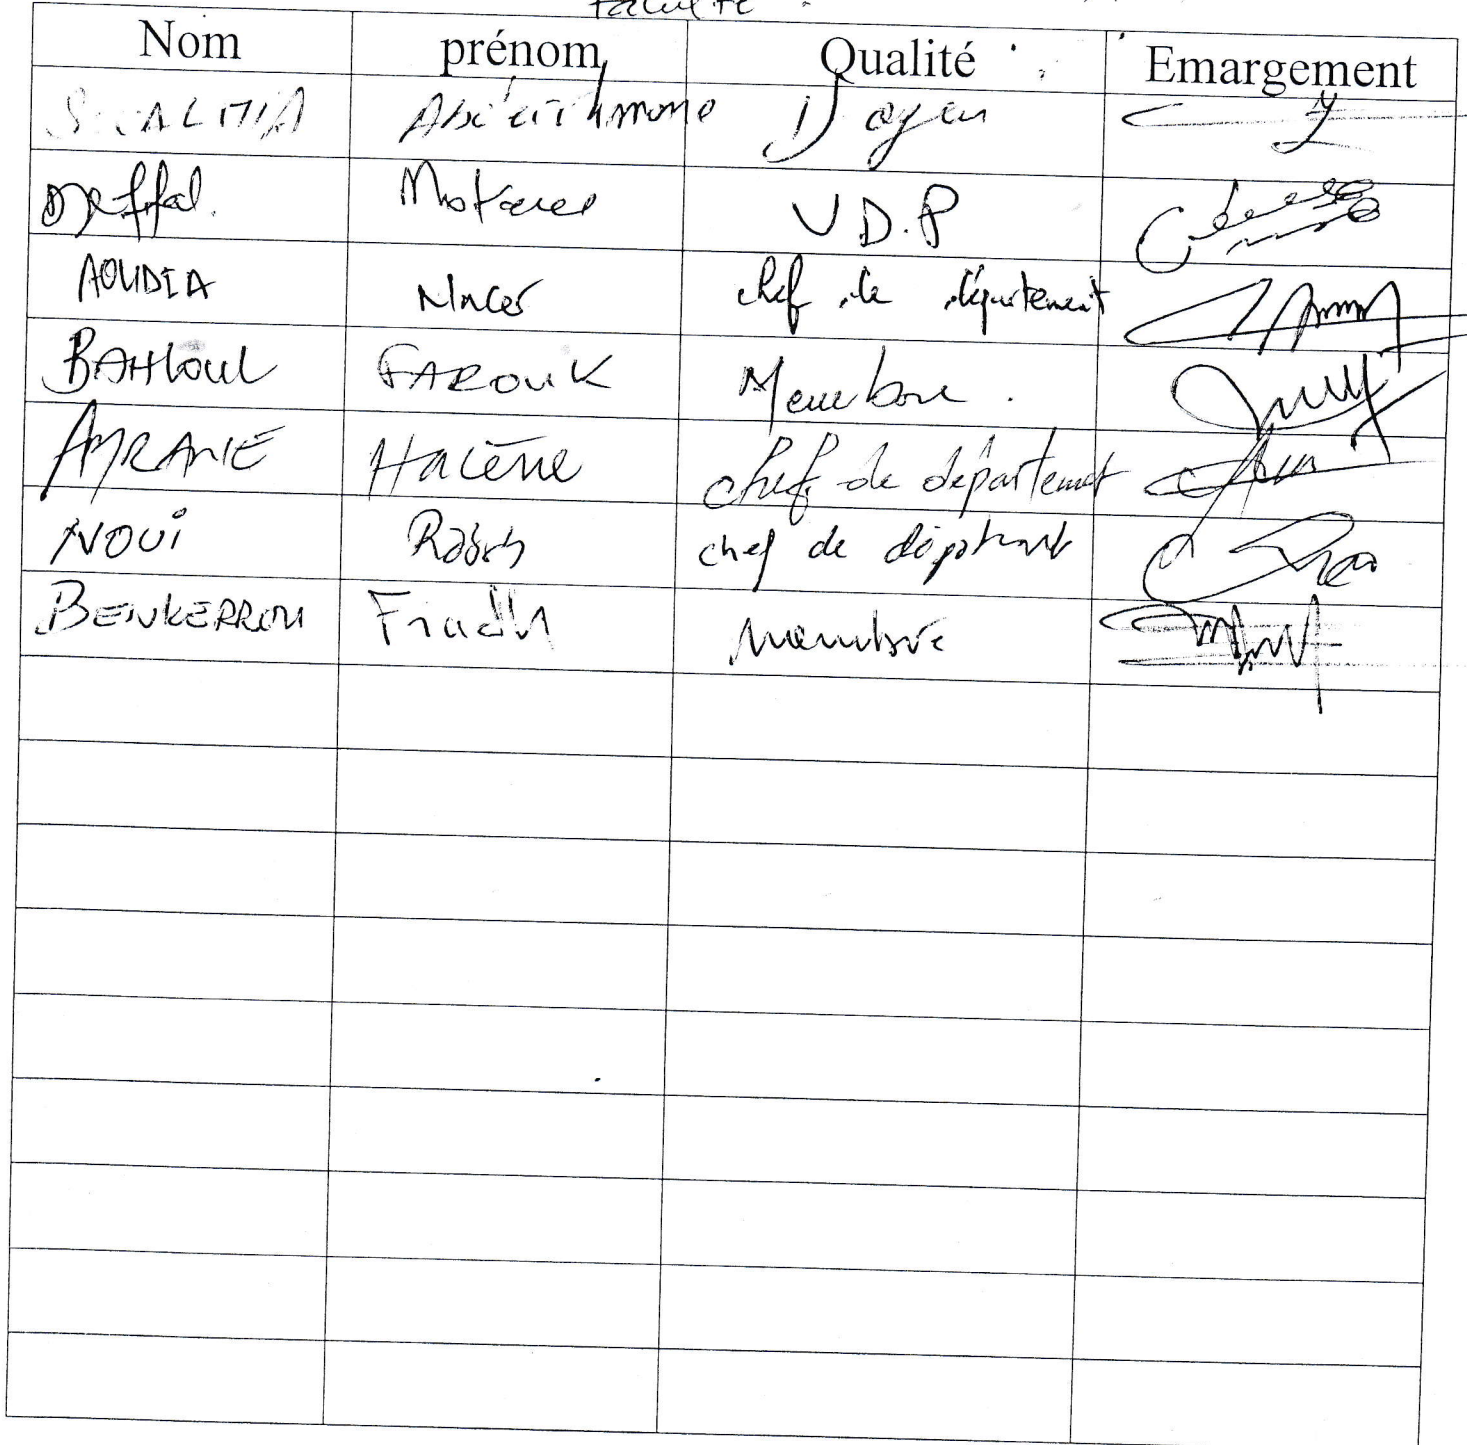 Faculté
Nom prénom Qualité Emargement
Doyen
Neffal. V.D.P
AOUDIA Nacer chef de département
BAHLOUL FAROUK Membre.
AYRANE Hacène chef de département
NOUI Rabah chef de départment
BENKERROU membre